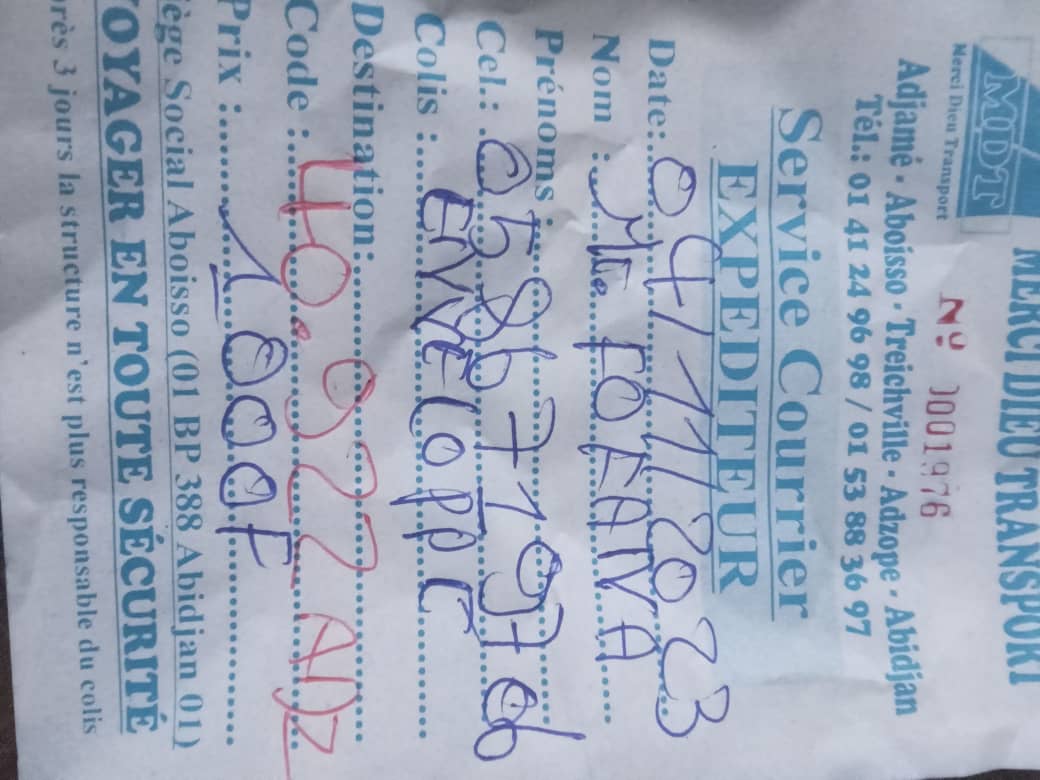 MERCI DIEU TRANSPORT
MDT
Merci Dieu Transport
Nº 0001976
Adjamé · Aboisso · Treichville · Adzope · Abidjan
Tél.: 01 41 24 96 98 / 01 53 88 36 97
Service Courrier
EXPEDITEUR
Date: 04/11/2023
Nom :
Prénoms :
Cel.: 0586719706
Colis : ENVELOPPE
Destination:
Code : 40.922 ADZ
Prix : 1000F
iège Social Aboisso (01 BP 388 Abidjan 01)
OYAGER EN TOUTE SÉCURITÉ
près 3 jours la structure n'est plus responsable du colis